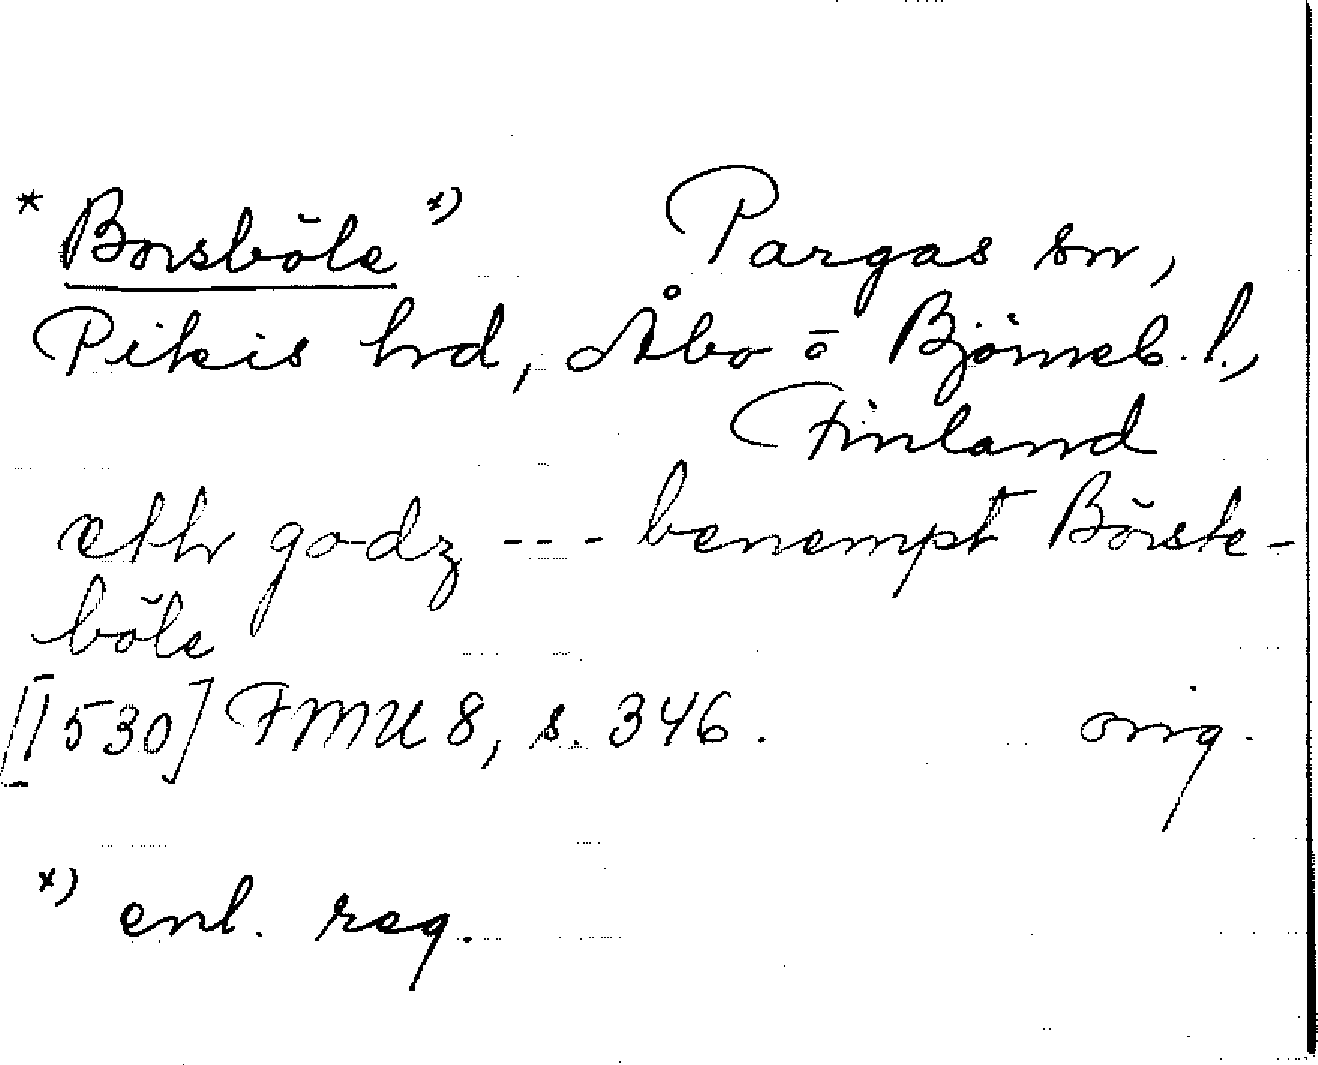 * Borsböle *) Pargas sn,
Pikis hrd, Åbo o Björneb. l.,
Finland
etth godz --- benempt Börste-
böle
[1530] FMU 8, s. 346. orig.
*) enl. reg.